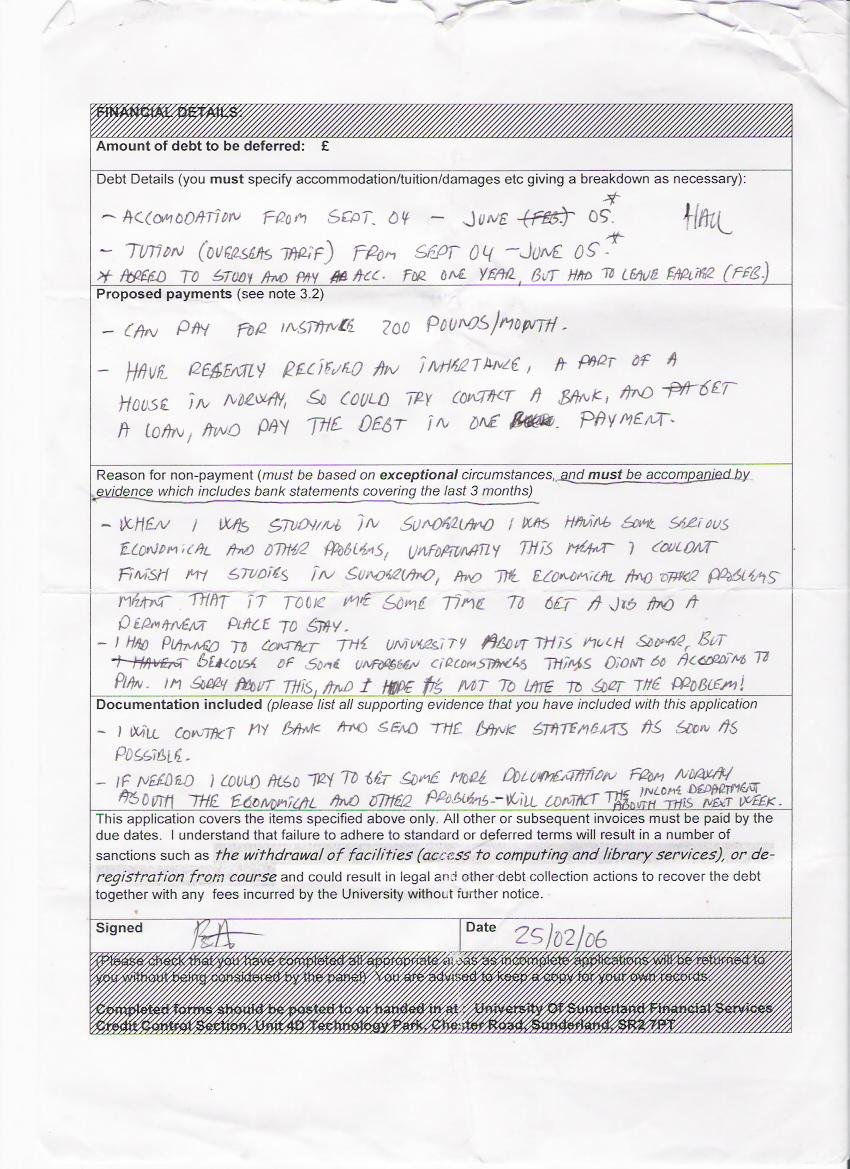 FINANCIAL DETAILS:
Amount of debt to be deferred: £
Debt Details (you must specify accommodation/tuition/damages etc giving a breakdown as necessary):
- ACCOMODATION FROM SEPT. 04 - JUNE (FEB.) 05.* HALL
- TUTION (OVERSEAS TARIF) FROM SEPT 04 - JUNE 05.*
* AGREED TO STUDY AND PAY ACC. FOR ONE YEAR, BUT HAD TO LEAVE EARLIER (FEB.)
Proposed payments (see note 3.2)
- CAN PAY FOR INSTANCE 200 POUNDS/MONTH.
- HAVE RESENTLY RECIEVED AN INHERTANCE, A PART OF A
HOUSE IN NORWAY, SO COULD TRY CONTACT A BANK, AND PA GET
A LOAN, AND PAY THE DEBT IN ONE PAYMENT.
Reason for non-payment (must be based on exceptional circumstances, and must be accompanied by
evidence which includes bank statements covering the last 3 months)
- WHEN I WAS STUDYING IN SUNDERLAND I WAS HAVING SOME SERIOUS
ECONOMICAL AND OTHER PROBLEMS, UNFORTUNATLY THIS MEANT I COULDNT
FINISH MY STUDIES IN SUNDERLAND, AND THE ECONOMICAL AND OTHER PROBLEMS
MEANT THAT IT TOOK ME SOME TIME TO GET A JOB AND A
PERMANENT PLACE TO STAY.
- I HAD PLANNED TO CONTACT THE UNIVERSITY ABOUT THIS MUCH SOONER, BUT
I HAVENT BEACOUSE OF SOME UNFORSEEN CIRCOMSTANCES THINGS DIDNT GO ACCORDING TO
PLAN. IM SORRY ABOUT THIS, AND I HOPE ITS NOT TO LATE TO SORT THE PROBLEM!
Documentation included (please list all supporting evidence that you have included with this application
- I WILL CONTACT MY BANK AND SEND THE BANK STATEMENTS AS SOON AS
POSSIBLE.
- IF NEEDED I COULD ALSO TRY TO GET SOME MORE DOCUMENTATION FROM NORWAY
ABOUTH THE ECONOMICAL AND OTHER PROBLEMS. - WILL CONTACT THE INCOME DEPARTMENT
ABOUTH THIS NEXT WEEK.
This application covers the items specified above only. All other or subsequent invoices must be paid by the
due dates. I understand that failure to adhere to standard or deferred terms will result in a number of
sanctions such as the withdrawal of facilities (access to computing and library services), or de-
registration from course and could result in legal and other debt collection actions to recover the debt
together with any fees incurred by the University without further notice.
Signed Date 25/02/06
(Please check that you have completed all appropriate areas as incomplete applications will be returned to
you without being considered by the panel) You are advised to keep a copy for your own records.
Completed forms should be posted to or handed in at : University Of Sunderland Financial Services
Credit Control Section, Unit 4D Technology Park, Chester Road, Sunderland, SR2 7PT